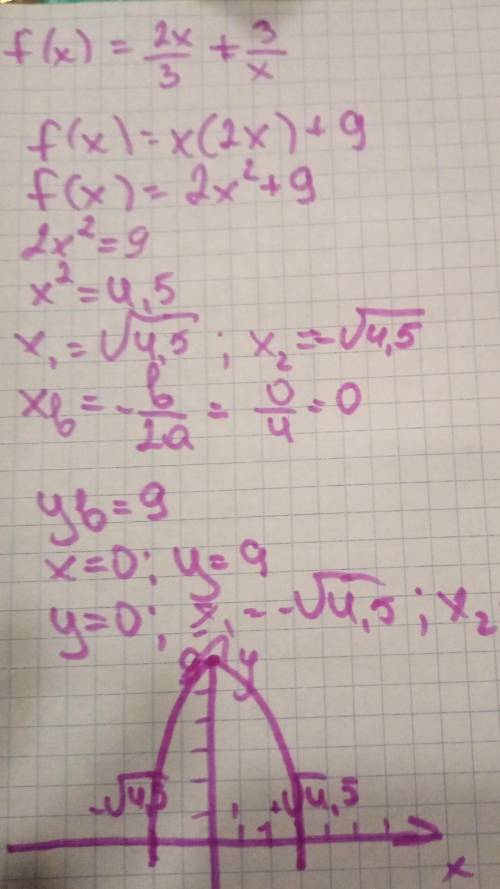 f(x) = 2x/3 + 3/x
f(x) = x(2x) + 9
f(x) = 2x² + 9
2x² = 9
x² = 4,5
x₁ = √4,5 ; x₂ = -√4,5
xb = - b/2a = 0/4 = 0
yb = 9
x = 0 ; y = 9
y = 0 ; x₁ = -√4,5 ; x₂
9 y
-√4,5 √4,5
x